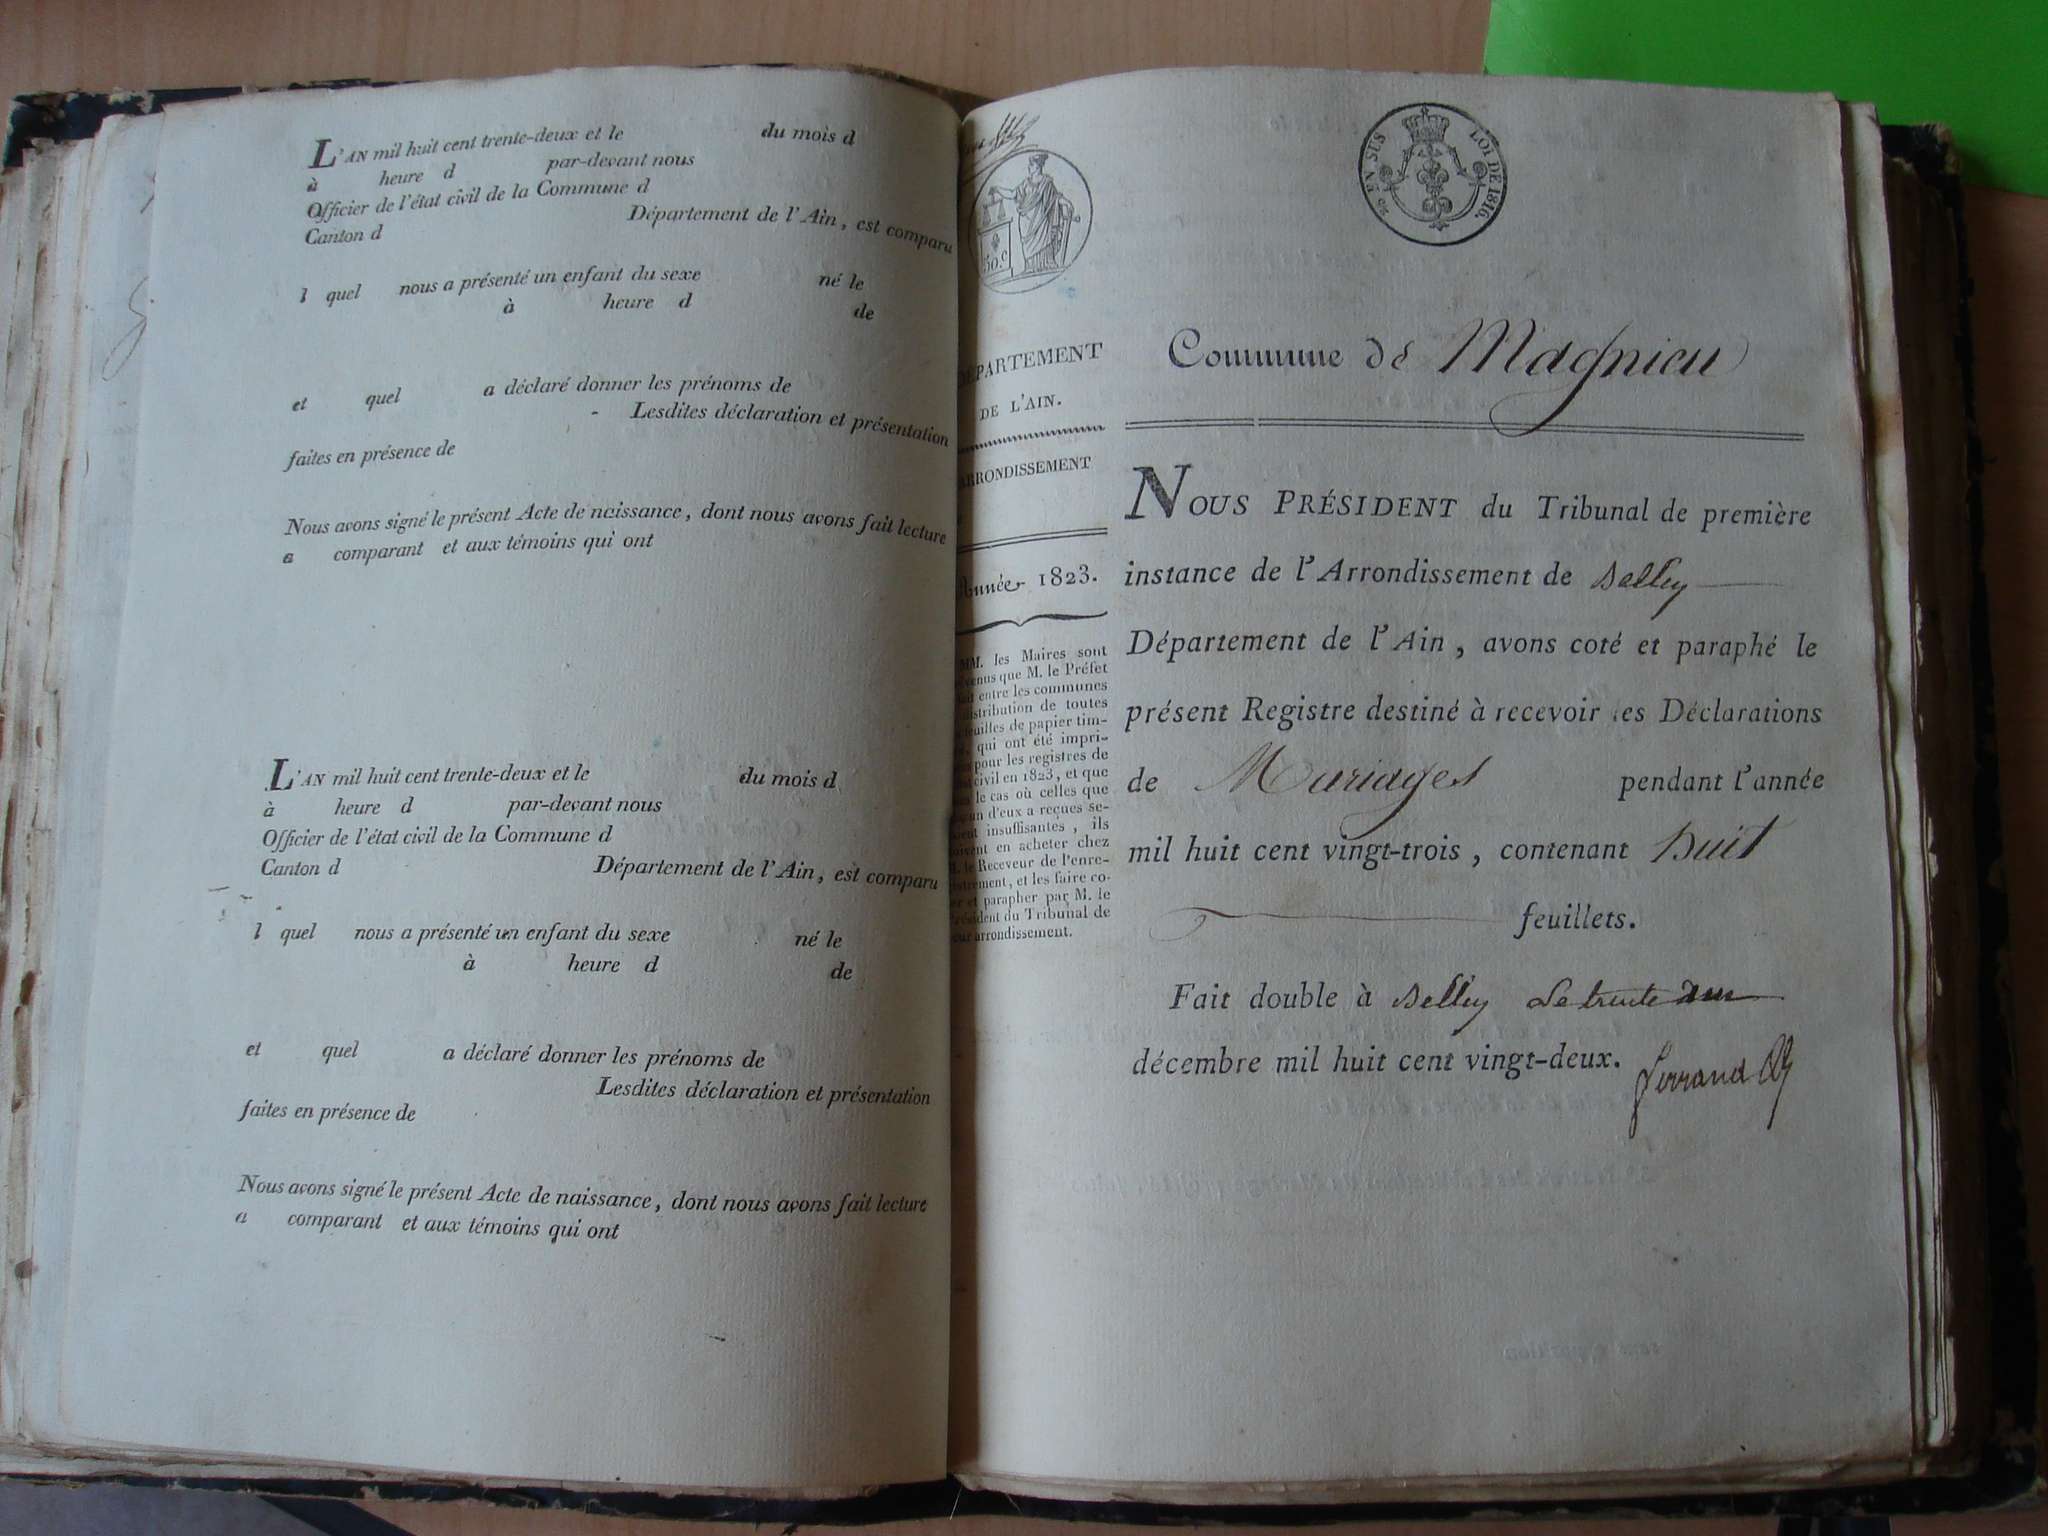 L'AN mil huit cent trente-deux et le du mois d
à heure d par-devant nous
Officier de l'état civil de la Commune d
Canton d Département de l'Ain, est comparu
l quel nous a présenté un enfant du sexe né le
à heure d de
et quel a déclaré donner les prénoms de
Lesdites déclaration et présentation
faites en présence de
Nous avons signé le présent Acte de naissance, dont nous avons fait lecture
a comparant et aux témoins qui ont
L'AN mil huit cent trente-deux et le du mois d
à heure d par-devant nous
Officier de l'état civil de la Commune d
Canton d Département de l'Ain, est comparu
l quel nous a présenté un enfant du sexe né le
à heure d de
et quel a déclaré donner les prénoms de
Lesdites déclaration et présentation
faites en présence de
Nous avons signé le présent Acte de naissance, dont nous avons fait lecture
a comparant et aux témoins qui ont
50.c
EN SUS LOI DE 1816.
PARTEMENT
DE L'AIN.
RRONDISSEMENT
nnée 1823.
MM. les Maires sont
enus que M. le Préfet
entre les communes
istribution de toutes
feuilles de papier tim-
qui ont été impri-
pour les registres de
civil en 1823, et que
le cas où celles que
un d'eux a reçues se-
ient insuffisantes, ils
oivent en acheter chez
M. le Receveur de l'enre-
istrement, et les faire co-
er et parapher par M. le
résident du Tribunal de
ur arrondissement.
Commune de Magnieu
NOUS PRÉSIDENT du Tribunal de première
instance de l'Arrondissement de Belley
Département de l'Ain, avons coté et paraphé le
présent Registre destiné à recevoir les Déclarations
de Mariages pendant l'année
mil huit cent vingt-trois, contenant huit
feuillets.
Fait double à Belley Le trente
décembre mil huit cent vingt-deux.